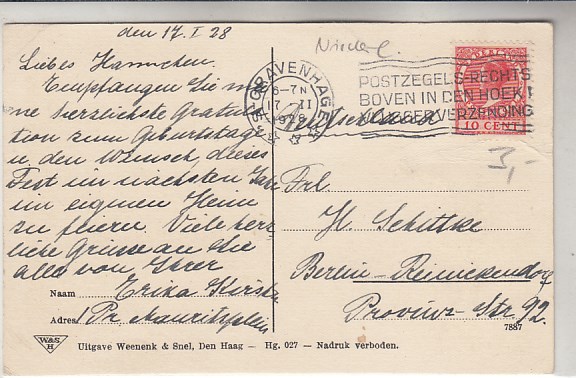 den 17. I 28
Liebes Hannchen.
Empfangen Sie mei-
ne herzlichste Gratula-
tion zum Geburtstage
u. den Wunsch, dieses
Fest im nächsten Jahr
im eigenen Heim
zu feiern. Viele herz-
liche Grüsse an Sie
alle von Ihrer
Naam Erika
Adres Pr. Mauritsplein
W&S
H
Uitgave Weenenk & Snel, Den Haag — Hg. 027 — Nadruk verboden.
Niederl.
'S-GRAVENHAGE
6-7N
17 II
1928
POSTZEGELS RECHTS
BOVEN IN DEN HOEK!
VLUGGER VERZENDING
10 CENT
3,-
Frl.
H. Schittke
Berlin-Reinickendorf
Provinz-Str. 92.
7887